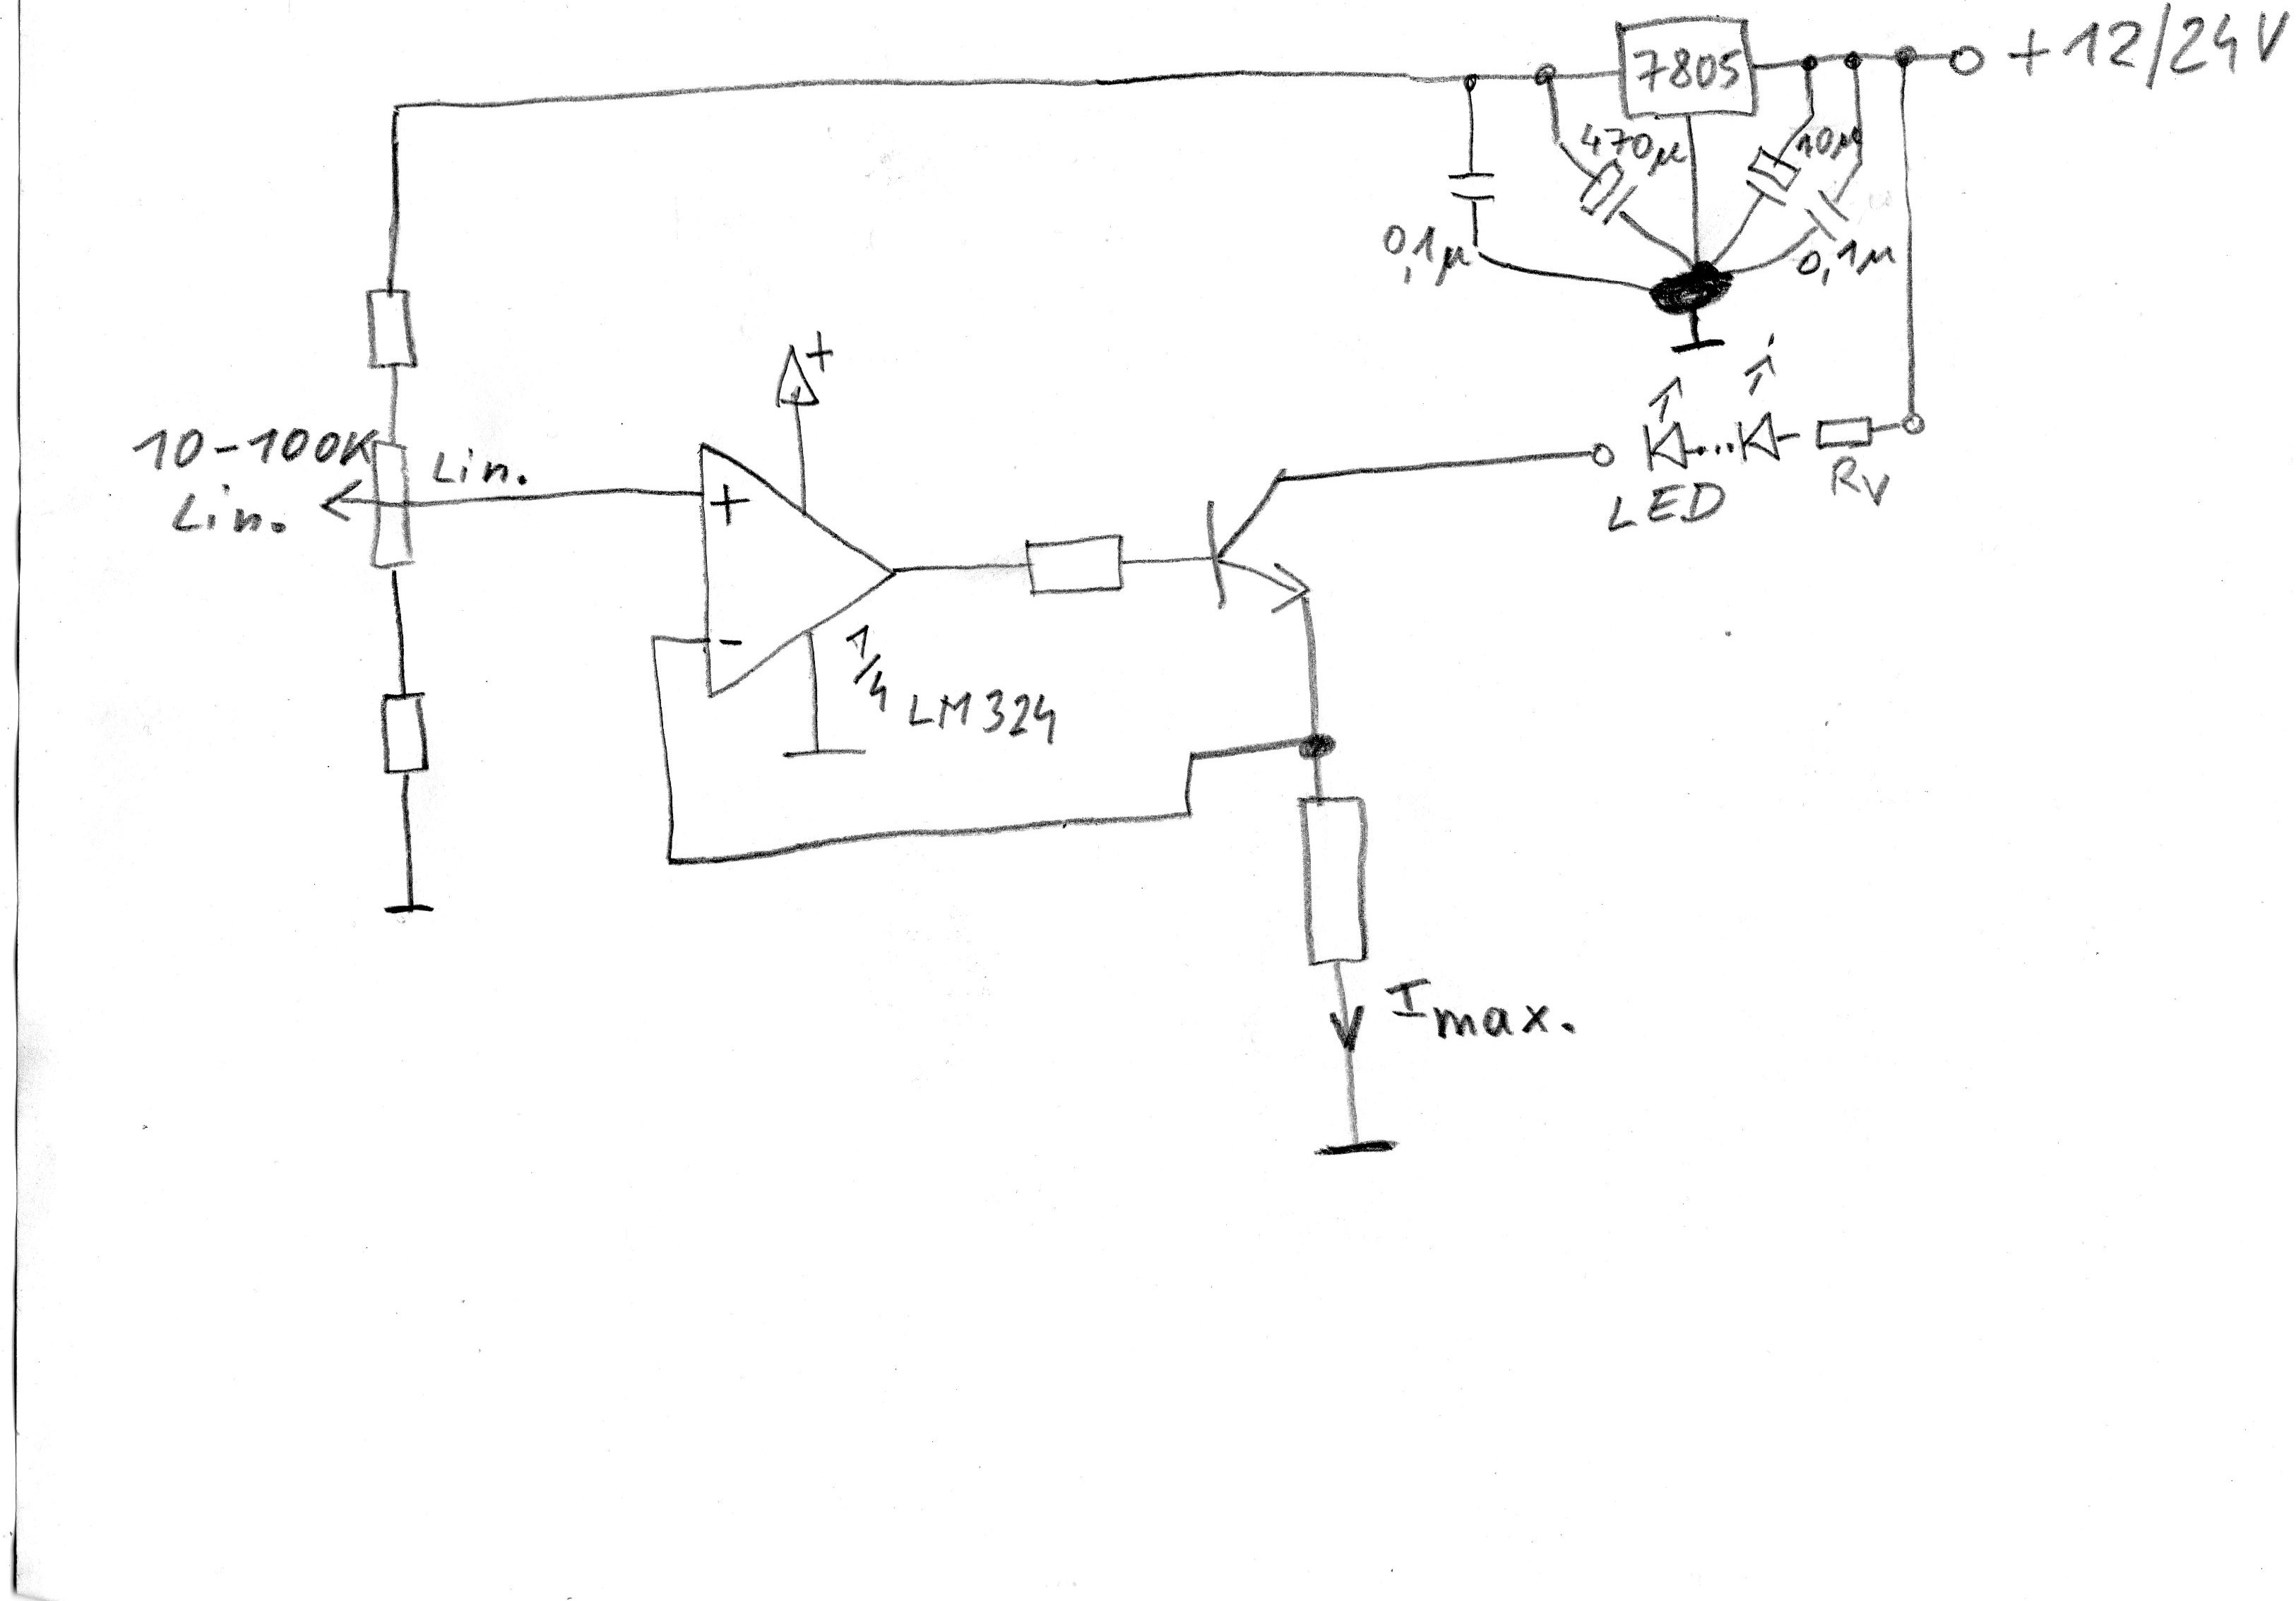 7805
+12/24V
470µ
10µ
0,1µ
0,1µ
+
10-100K
Lin.
Lin.
+
-
1/4 LM324
LED
RV
Imax.